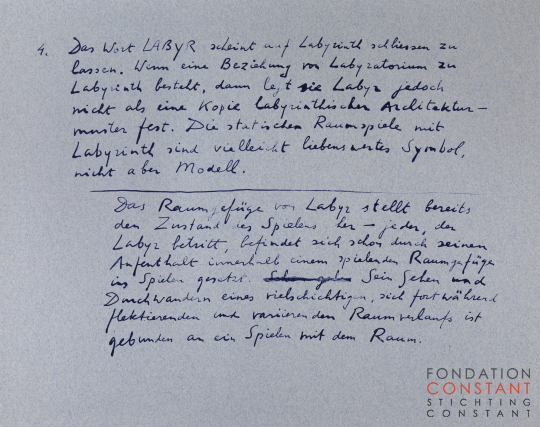 4. Das Wort LABYR scheint auf Labyrinth schliessen zu
lassen. Wenn eine Beziehung von Labyratorium zu
Labyrinth besteht, dann legt sie Labyr jedoch
nicht als eine Kopie labyrinthischer Architektur-
muster fest. Die statischen Raumspiele mit
Labyrinth sind vielleicht liebenswertes Symbol,
nicht aber Modell.
Das Raumgefüge von Labyr stellt bereits
den Zustand des Spielens her - jeder, der
Labyr betritt, befindet sich schon durch seinen
Aufenthalt innerhalb einem spielenden Raumgefüge
ins Spielen gesetzt. Sein Gehen und
Durchwandern eines vielschichtigen, sich fortwährend
flektierenden und variierenden Raumverlaufs ist
gebunden an ein Spielen mit dem Raum.
FONDATION
CONSTANT
STICHTING
CONSTANT